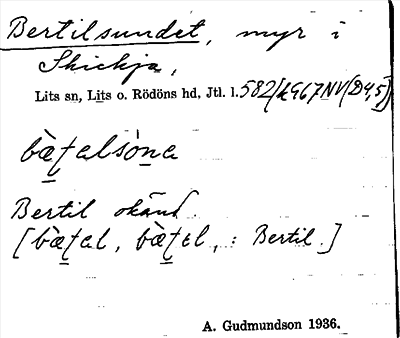 Bertilsundet, myr i
Skickja,
Lits sn, Lits o. Rödöns hd, Jtl. l. 582[h967NV(D4,5)]
bæ̀ʈalsóna
Bertil okänd.
[bæ̀ʈal, bæ̀ʈɛl, : Bertil.]
A. Gudmundson 1936.